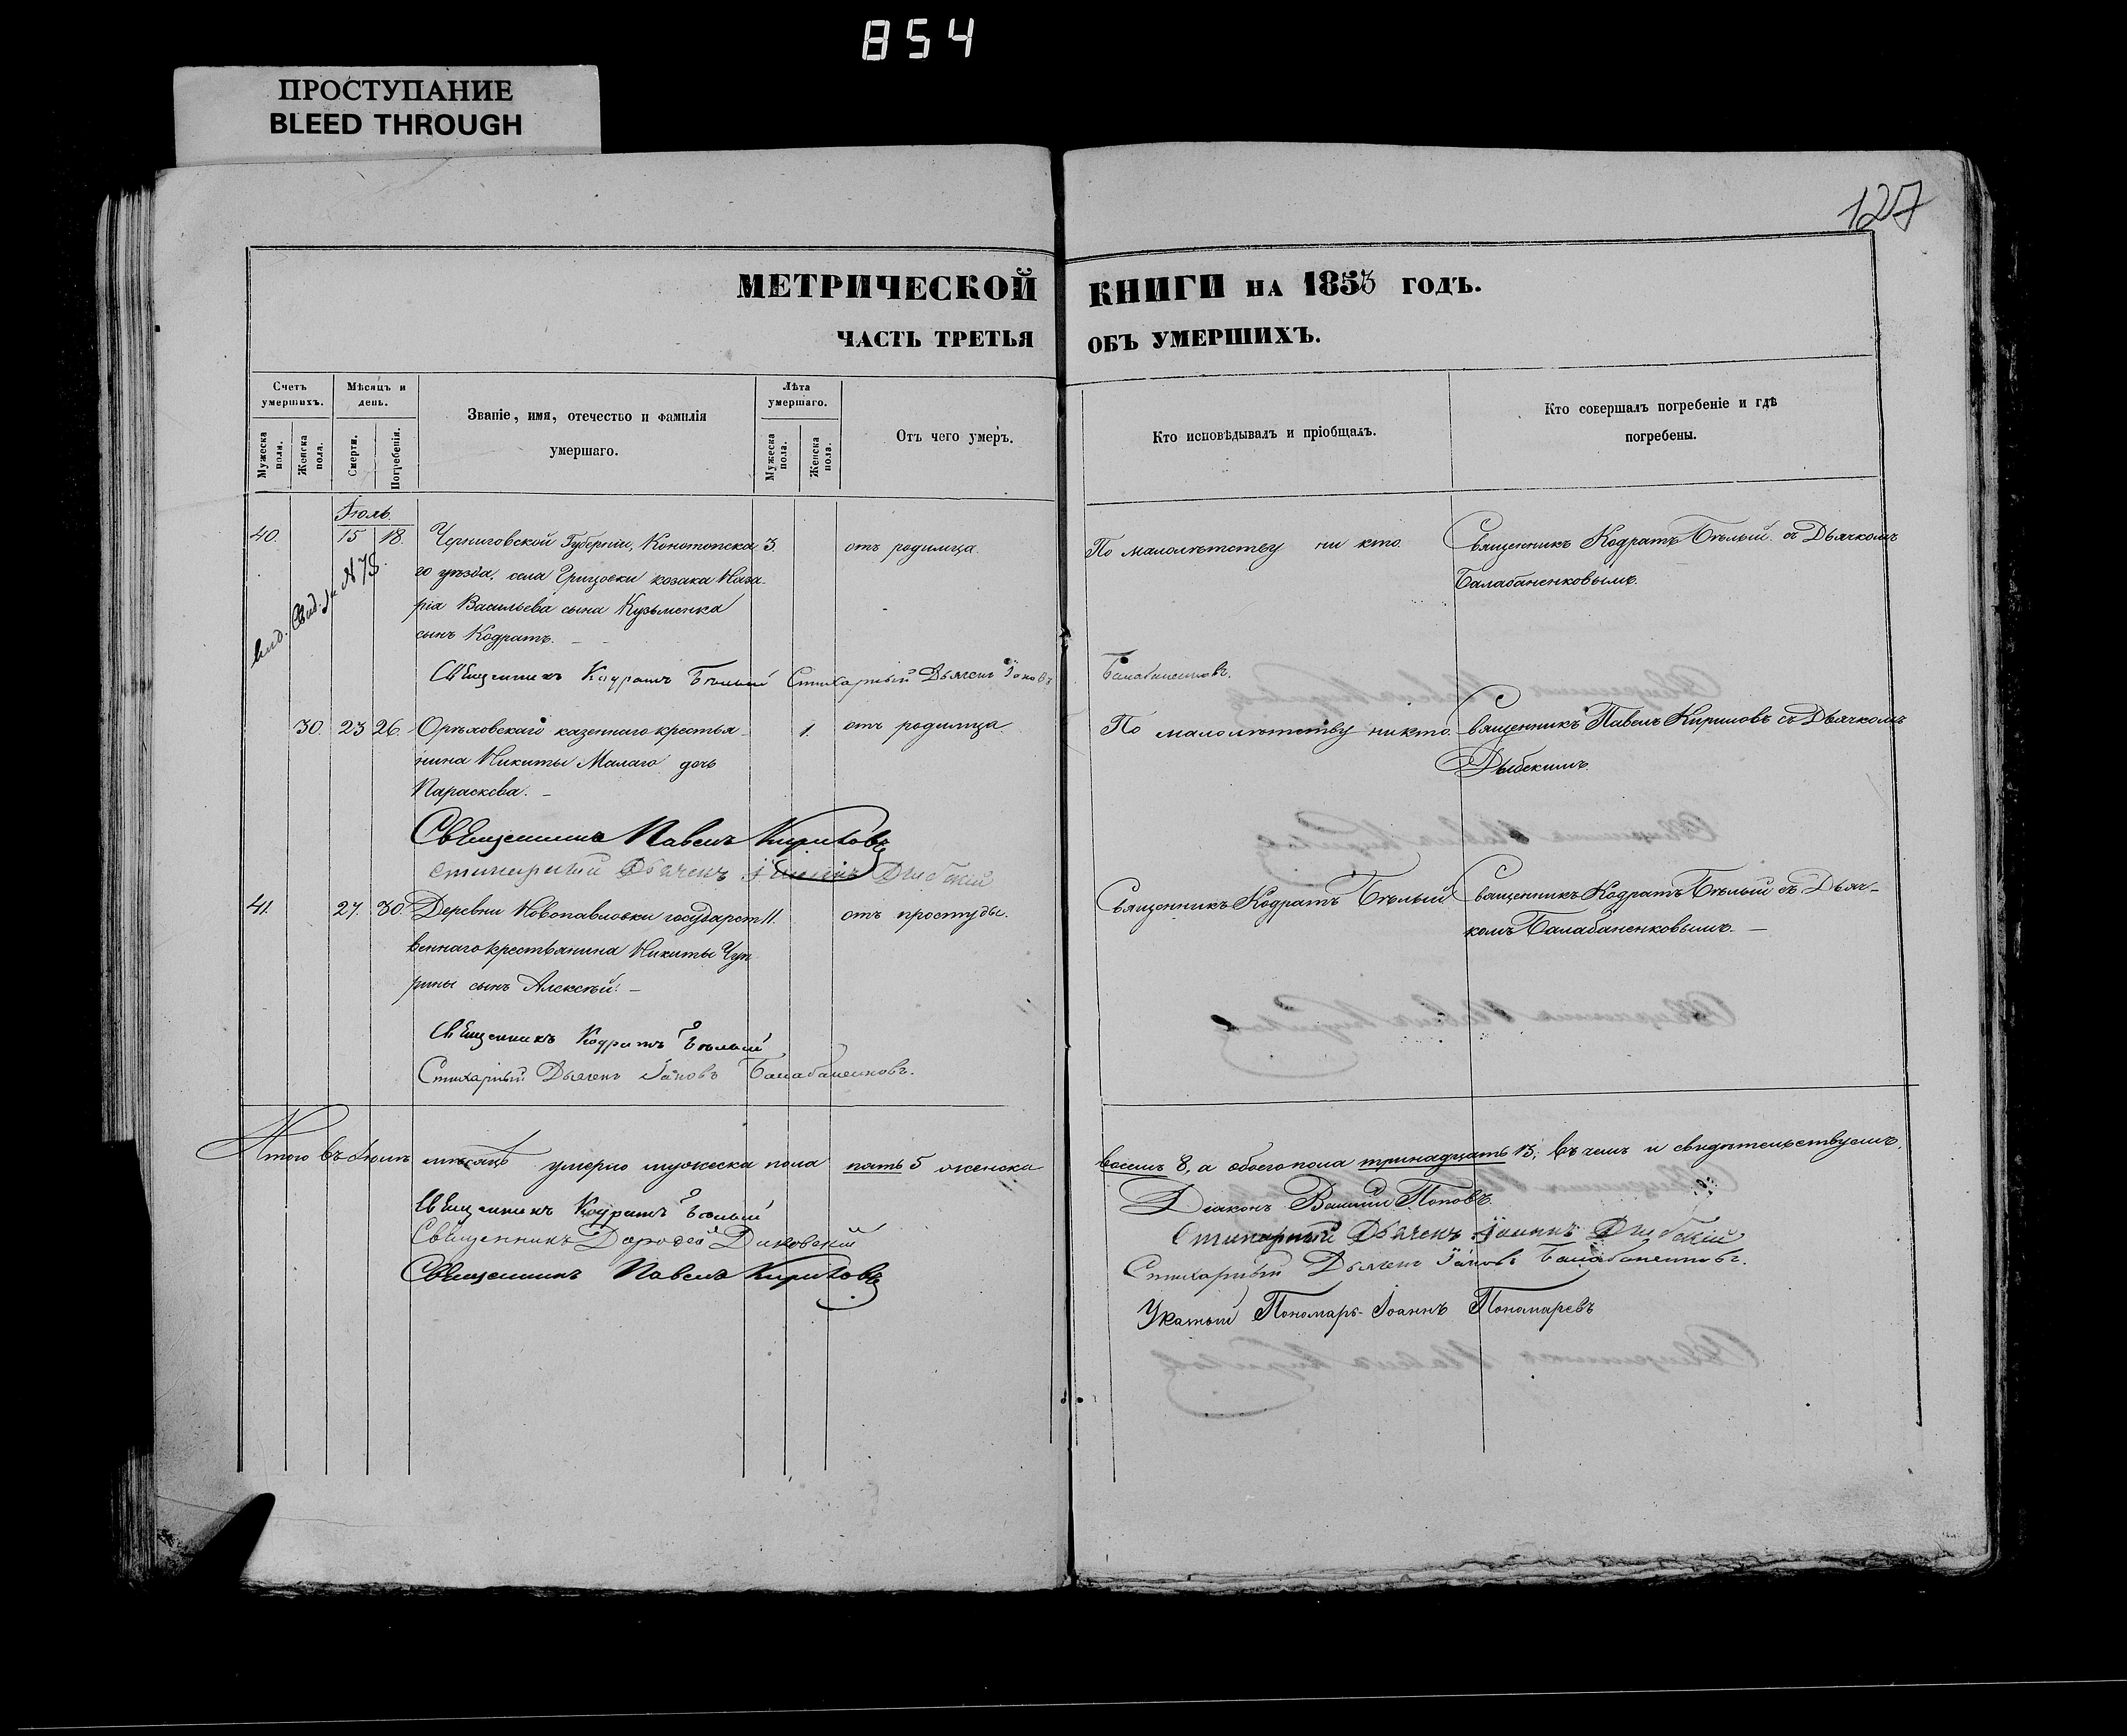 854
ПРОСТУПАНИЕ
BLEED THROUGH
127
МЕТРИЧЕСКОЙ КНИГИ НА 1853 ГОДЪ.
ЧАСТЬ ТРЕТЬЯ ОБЪ УМЕРШИХЪ.
Счетъ умершихъ.
Мужеска пола.
Женска пола.
Мѣсяцъ и день.
Смерти.
Погребенія.
Званіе, имя, отечество и фамилія
умершаго.
Лѣта умершаго.
Мужеска пола.
Женска пола.
Отъ чего умеръ.
Кто исповѣдывалъ и пріобщалъ.
Кто совершалъ погребеніе и гдѣ
погребены.
Іюль.
40. 15 18. Черниговской Губерніи, Конотопска 3. отъ родимца. По малолѣтству ни кто. Священникъ Кодратъ Бѣлый съ Дьячкомъ
го уѣзда, села Грицовки козака Наза- Балабаненковымъ.
рія Васильева сына Кузьменка
сынъ Кодратъ. —
выд. Свид. за № 78.
Священникъ Кодратъ Бѣлый Стихарный Дьячекъ Іаковъ Балабаненковъ.
30. 23 26. Орѣховскаго казеннаго крестья- 1. отъ родимца. По малолѣтству никто. Священникъ Павелъ Кириловъ съ Дьячкомъ
нина Никиты Малаго дочь Дыбскимъ.
Параскева. —
Священникъ Павелъ Кириловъ
Стихарный Дьячекъ Іоаннъ Дыбскій
41. 27. 30. Деревни Новопавловки государст 11. отъ простуды. Священникъ Кодратъ Бѣлый Священникъ Кодратъ Бѣлый съ Дьяч-
веннаго крестьянина Никиты Чуп комъ Балабаненковымъ. —
рины сынъ Алексѣй. —
Священникъ Кодратъ Бѣлый
Стихарный Дьячекъ Іаковъ Балабаненковъ.
Итого въ Іюлѣ мѣсяцѣ умерло мужеска пола пять 5 женска восемь 8, а обоего пола тринадцать 13; въ чемъ и свидѣтельствуемъ.
Священникъ Кодратъ Бѣлый
Священникъ Дорофей Диковскій
Священникъ Павелъ Кириловъ
Діаконъ Василій Поповъ.
Стихарный Дьячекъ Іоаннъ Дыбскій
Стихарный Дьячекъ Іаковъ Балабаненковъ.
Указный Пономарь Іоаннъ Пономаревъ